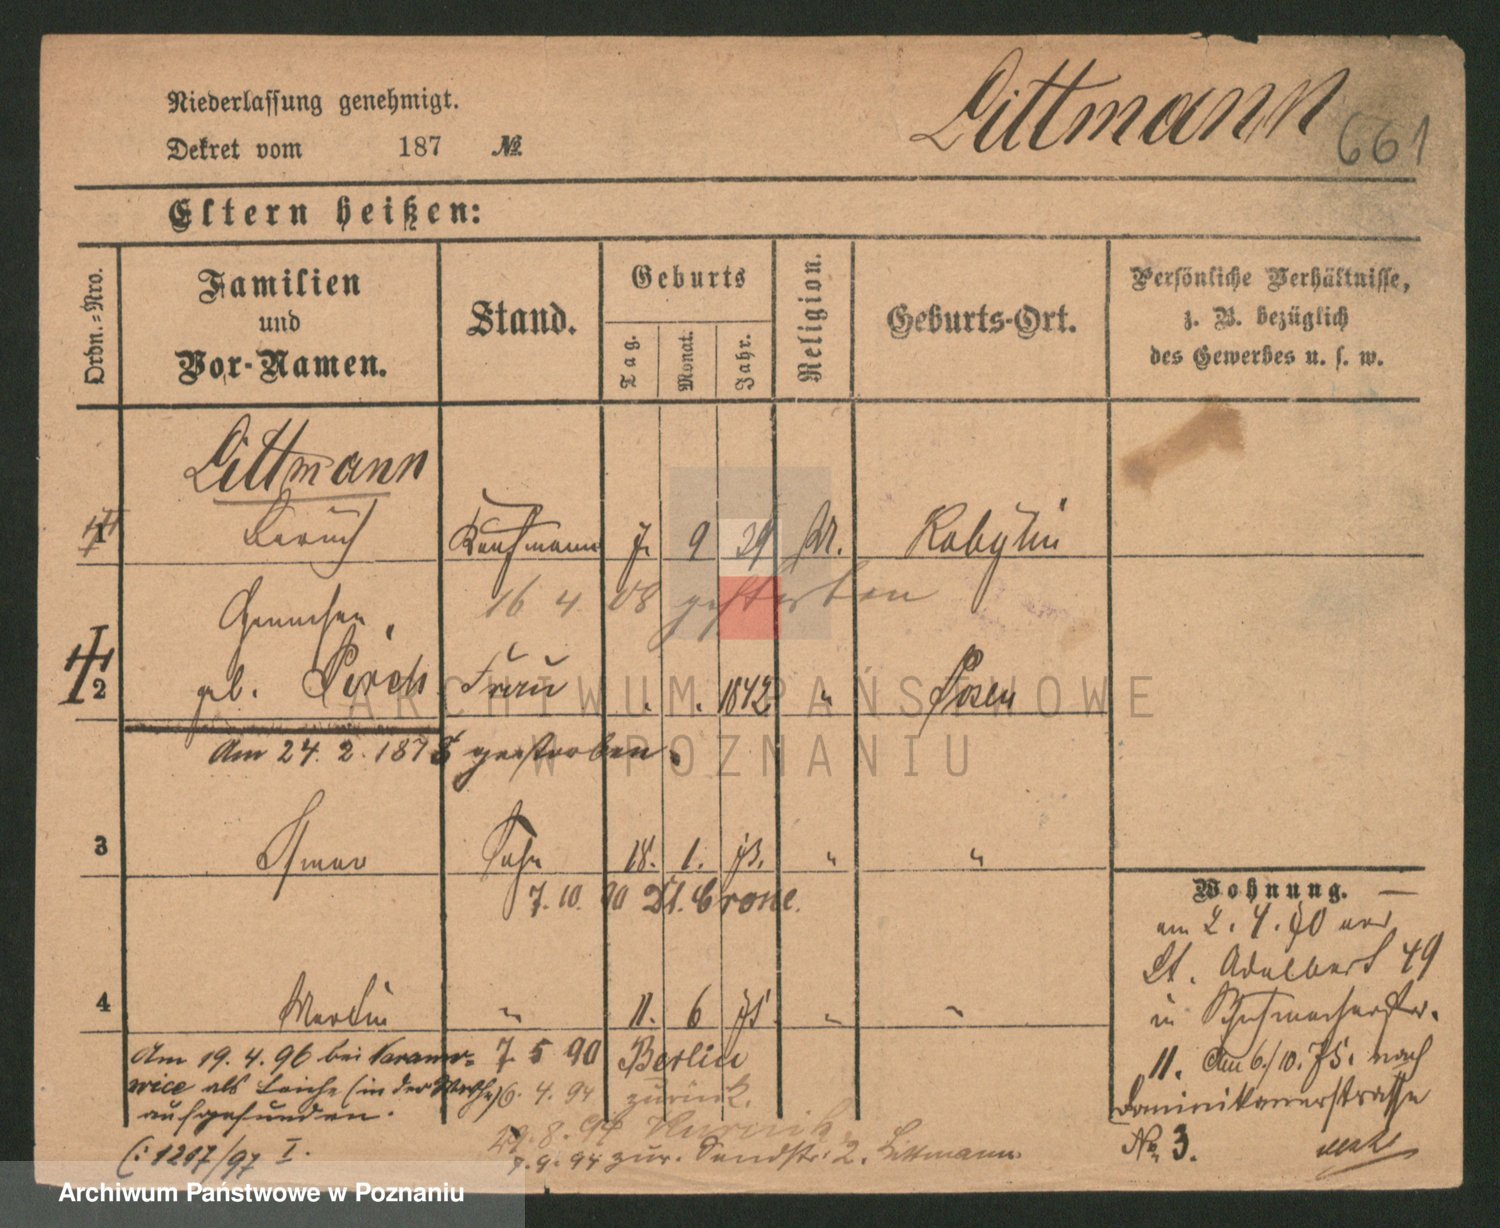 Niederlassung genehmigt.
Dekret vom 187 No.
Littmann
661
Eltern heißen:
Ordn.-Nro.
Familien
und
Vor-Namen.
Stand.
Geburts
Tag.
Monat.
Jahr.
Religion.
Geburts-Ort.
Persönliche Verhältnisse,
z. B. bezüglich
des Gewerbes u. s. w.
Littmann
1 Baruch Kaufmann 7. 9 29 M. Kobylin
16 4 08 gestorben
2 gb. Frau 1842 " Posen
Am 24. 2. 1878 gestorben.
3 Sohn 18. 1. 73. " "
7. 10. 90 Dt. Crone.
4 Martin " 11. 6 75 " "
Am 19. 4. 96 bei
als Leiche (in der Warthe)
aufgefunden.
(: 1217/97 I.
7. 5 90 Berlin
6. 4. 94 zurück.
29. 8. 94 Kurnik
7. 9. 94 zur. Sandstr. 2. Littmann
Wohnung.
am 2. 4. 70
St. Adalbert 49
in Schuhmacherstr.
11. Am 6/10. 75. nach
Dominikanerstrasse
No. 3.
ARCHIWUM PAŃSTWOWE
W POZNANIU
Archiwum Państwowe w Poznaniu